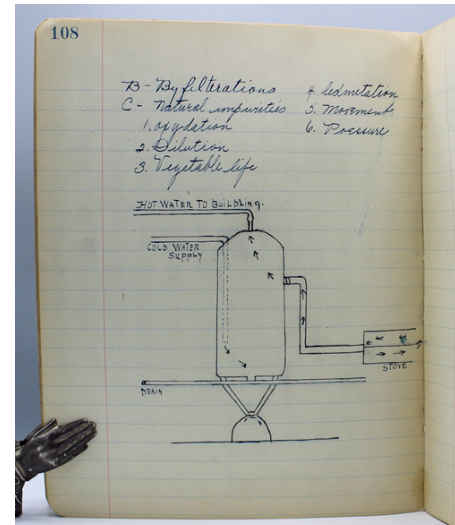 108
B - By filterations
C - Natural impurities
1. oxydation
2. Dilution
3. Vegetable life
4. Sedmitation
5. Movement
6. Pressure
HOT WATER TO BUILDING.
COLD WATER
SUPPLY
STOVE
DRAIN